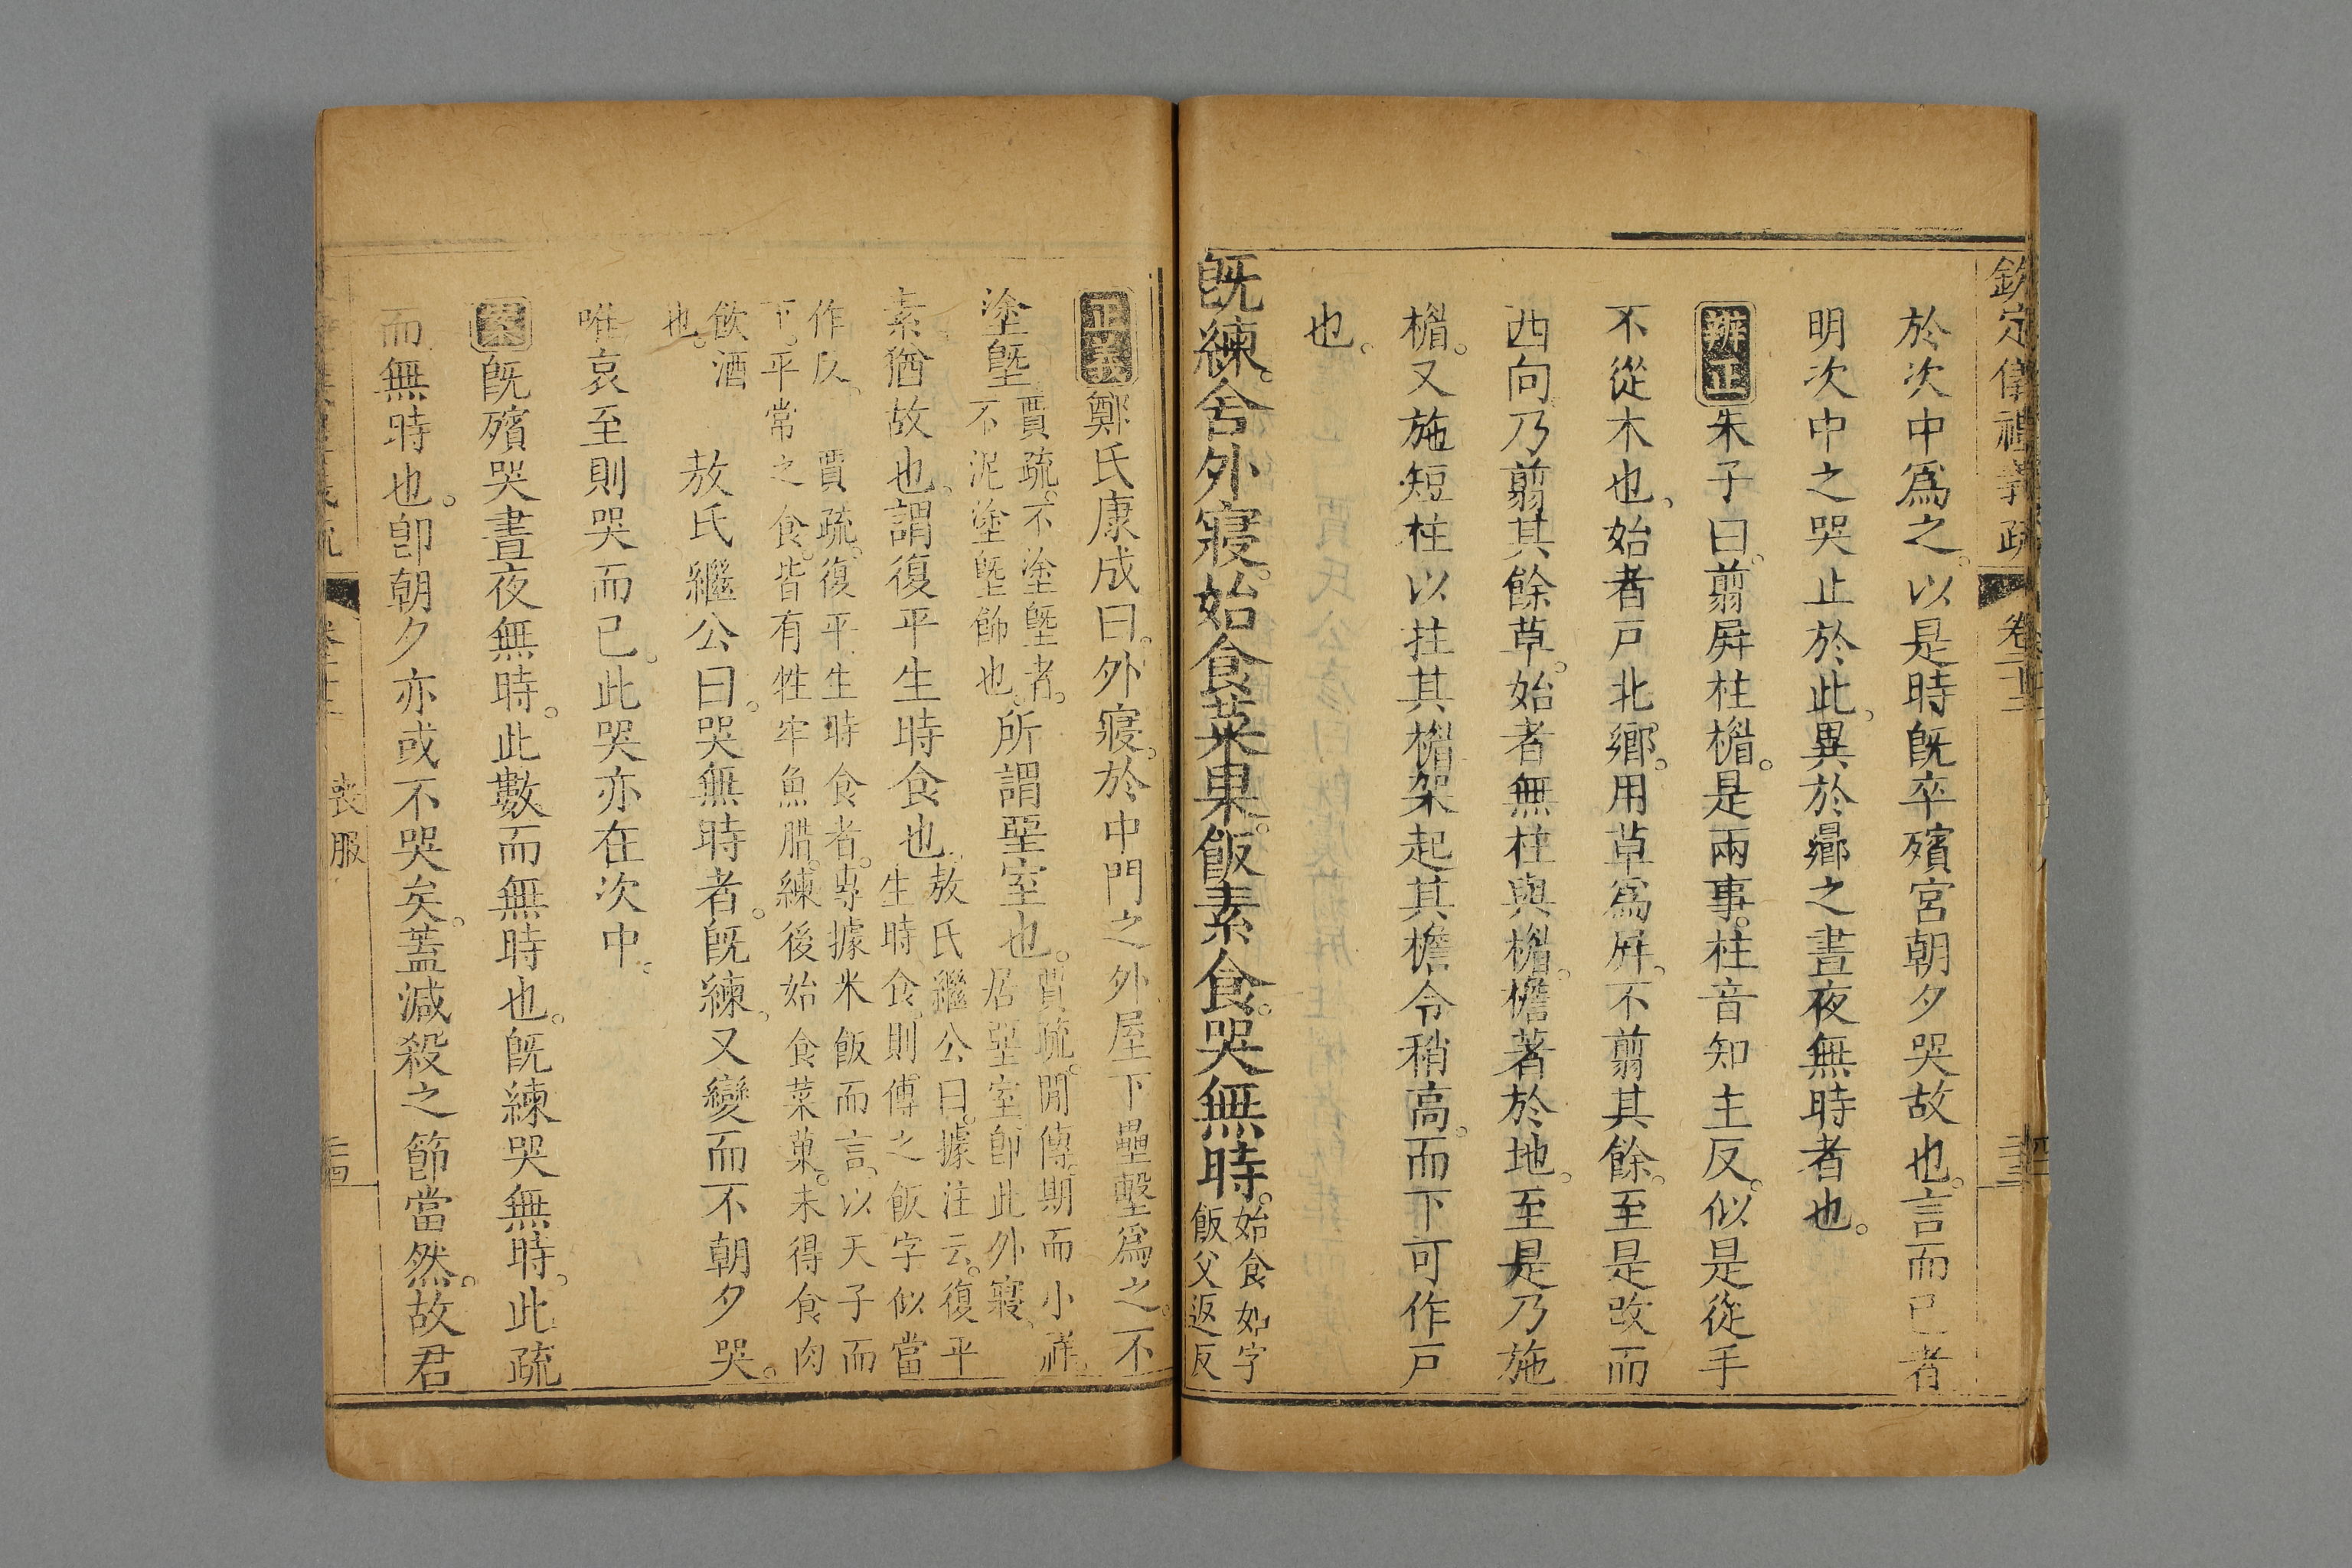 欽定儀禮義疏 卷二十二 三三
於次中爲之。以是時旣卒殯宮朝夕哭故也。言而已者
明次中之哭止於此、異於曏之晝夜無時者也。
辨正 朱子曰。翦屛柱楣。是兩事。柱音知主反。似是從手
不從木也、始者戶北鄉。用草爲屛、不翦其餘。至是改而
西向乃翦其餘草。始者無柱與楣。檐著於地。至是乃施
楣。又施短柱以拄其楣架起其檐令稍高。而下可作戶
也。
旣練。舍外寢。始食菜果。飯素食。哭無時。始食如字飯父返反
正義 鄭氏康成曰。外寢。於中門之外、屋下壘墼爲之。不
塗塈賈疏。不塗塈者。不泥塗塈飾也。所謂堊室也。賈疏。閒傳期而小祥。居堊室卽此外寢、
素猶故也、謂復平生時食也、敖氏繼公曰。據注云。復平生時食、則傳之飯字似當
作反、 賈疏。復平生時食者。專據米飯而言、以天子而下。平常之食。皆有牲牢魚腊。練後始食菜菓。未得食肉
飲酒也。 敖氏繼公曰。哭無時者。旣練、又變而不朝夕哭。
唯哀至則哭而已。此哭亦在次中。
案 旣殯哭晝夜無時。此數而無時也。旣練哭無時。此疏
而無時也。卽朝夕亦或不哭矣。蓋減殺之節當然。故君
喪服 三四